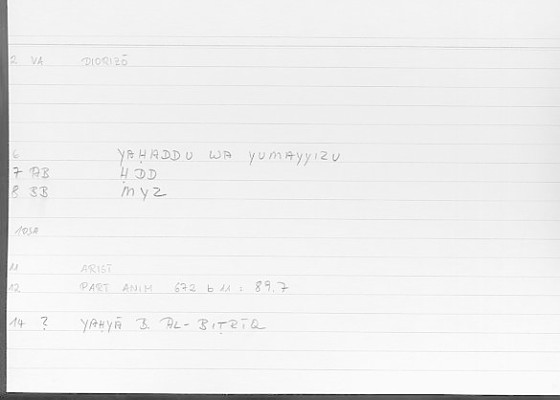 2 VA DIORIZŌ
6 YAḤADDU WA YUMAYYIZU
7 AB ḤDD
8 BB MYZ
10SA
11 ARIST
12 PART ANIM 672 b 11 : 89.7
14 ? YAḤYĀ B AL-BIṬRĪQ